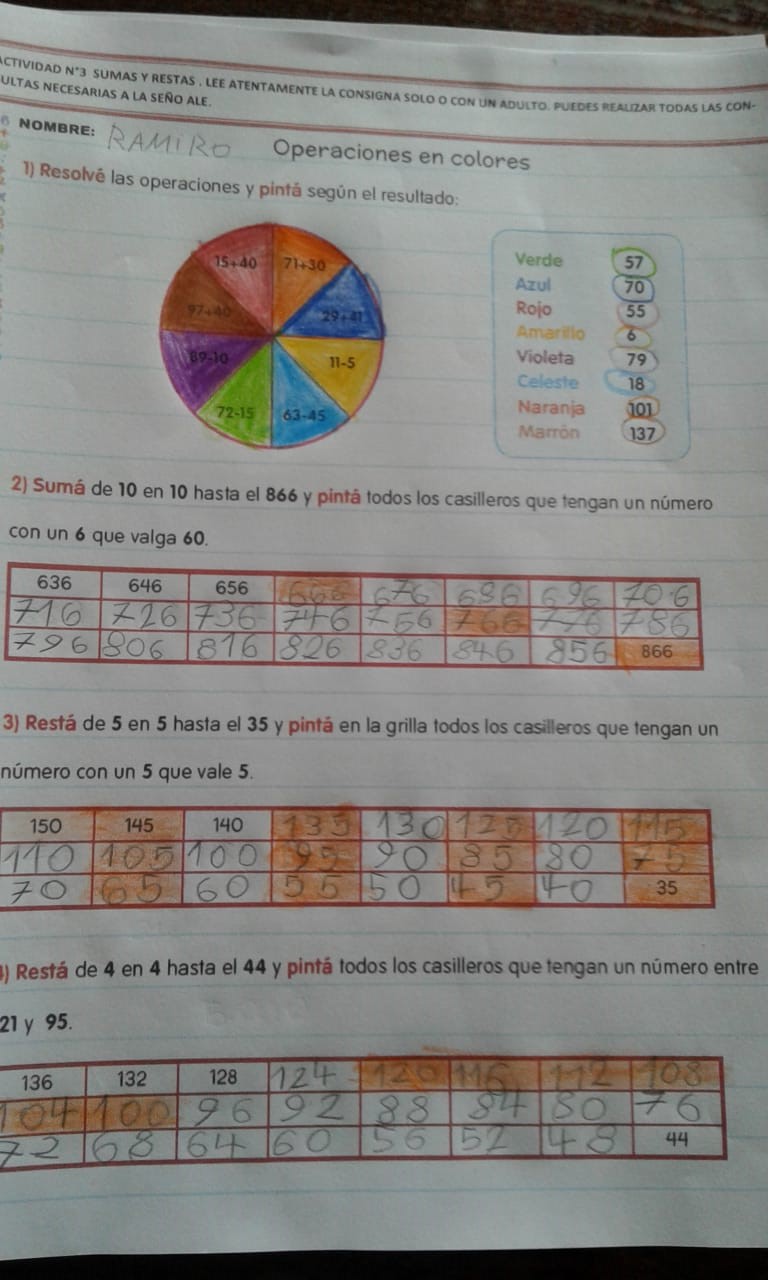 ACTIVIDAD N°3 SUMAS Y RESTAS . LEE ATENTAMENTE LA CONSIGNA SOLO O CON UN ADULTO. PUEDES REALIZAR TODAS LAS CON-
ULTAS NECESARIAS A LA SEÑO ALE.
NOMBRE: RAMIRO
Operaciones en colores
1) Resolvé las operaciones y pintá según el resultado:
15+40 71+30
97+40 29+41
89-10 11-5
72-15 63-45
Verde 57
Azul 70
Rojo 55
Amarillo 6
Violeta 79
Celeste 18
Naranja 101
Marrón 137
2) Sumá de 10 en 10 hasta el 866 y pintá todos los casilleros que tengan un número
con un 6 que valga 60.
636 646 656 666 676 686 696 706
716 726 736 746 756 766 776 786
796 806 816 826 836 846 856 866
3) Restá de 5 en 5 hasta el 35 y pintá en la grilla todos los casilleros que tengan un
número con un 5 que vale 5.
150 145 140 135 130 125 120 115
110 105 100 95 90 85 80 75
70 65 60 55 50 45 40 35
4) Restá de 4 en 4 hasta el 44 y pintá todos los casilleros que tengan un número entre
21 y 95.
136 132 128 124 120 116 112 108
104 100 96 92 88 84 80 76
72 68 64 60 56 52 48 44